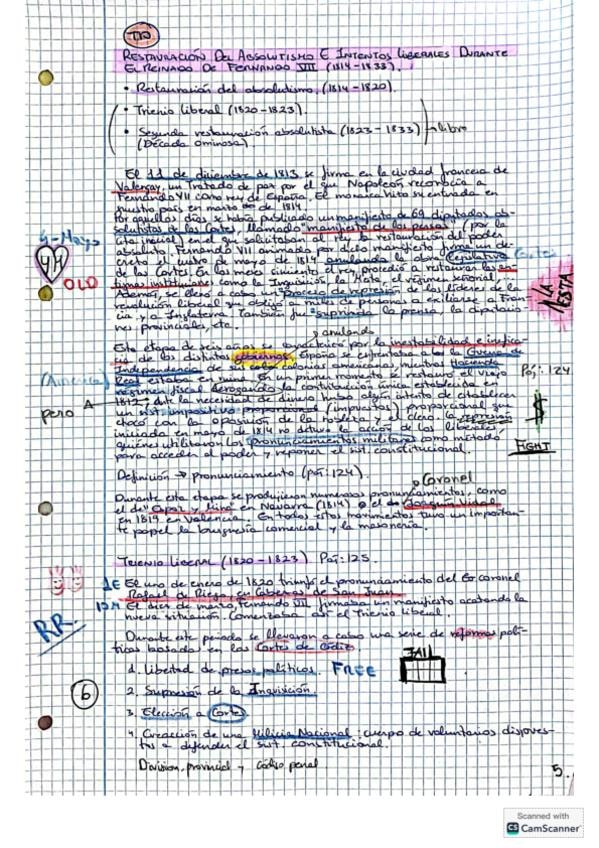 T10
RESTAURACIÓN DEL ABSOLUTISMO E INTENTOS LIBERALES DURANTE
EL REINADO DE FERNANDO VII (1814-1833).
• Restauración del absolutismo, (1814-1820).
• Trienio liberal (1820-1823).
• Segunda restauración absolutista (1823-1833) → libro
(Década ominosa).
El 11 de diciembre de 1813 se firma en la ciudad francesa de
Valençay, un Tratado de paz por el que Napoleón reconocía a
Fernando VII como rey de España. El monarca hizo su entrada en
nuestro país en marzo de 1814.
Por aquellos días se había publicado un manifiesto de 69 diputados ab-
solutistas de las Cortes, llamado "manifiesto de los persas" (por la
cita inicial) en el que solicitaban al rey la restauración del poder
absoluto. Fernando VII apoyado por dicho manifiesto firma un de-
creto el cuatro de mayo de 1814 anulando la obra legislativa
de las Cortes. En los meses el rey procedió a restaurar las an-
tiguas instituciones como la Inquisición, la Mesta, el régimen señorial...
Además, se llevó a cabo un proceso de represión de los líderes de la
revolución liberal que obligó a miles de personas a exiliarse a Fran-
cia y a Inglaterra. También fue suprimida la prensa, la diputacio-
nes provinciales, etc.
4-Mayo
4M
OLD
Cortes
anulando
Esta etapa de seis años se caracterizó por la inestabilidad e inefica-
cia de los distintos gobiernos. España se enfrentaba a la Guerra de
Independencia de sus colonias americanas, mientras Hacienda
Real estaba en ruina. En un primer momento se restauró el viejo
régimen fiscal derogando la contribución única establecida en
1813; ante la necesidad de dinero hubo algún intento de establecer
un sist. impositivo proporcional (impuestos) proporcional que
chocó con la oposición de la nobleza y el clero. La represión
iniciada en mayo de 1814 no detuvo la acción de los liberales,
quienes utilizaron los pronunciamientos militares como método
para acceder al poder y reponer el sist. constitucional.
(América)
pero
Pág: 124
$
FIGHT
Definición → pronunciamiento (pág: 124).
Coronel
Durante esta etapa se produjeron numerosos pronunciamientos, como
el de "Espoz y Mina" en Navarra (1814) o el de Joaquín Vidal
en 1819 en Valencia. En todos estos movimientos tuvo un importan-
te papel la burguesía comercial y la masonería.
TRIENIO LIBERAL (1820-1823) Pág: 125.
1E El uno de enero de 1820 triunfó el pronunciamiento del coronel
Rafael de Riego en Cabezas de San Juan.
El diez de marzo, Fernando VII firmaba un manifiesto acatando la
nueva situación. Comenzaba así el Trienio liberal.
RR
Durante este periodo se llevaron a cabo una serie de reformas polí-
ticas basadas en las Cortes de Cádiz:
1. Libertad de presos políticos. FREE
JAIL
2. Supresión de la Inquisición.
3. Elección a Cortes
4. Creación de una Milicia Nacional: cuerpo de voluntarios dispues-
tos a defender el sist. constitucional.
División provincial y código penal
6
5.
Scanned with
CS CamScanner